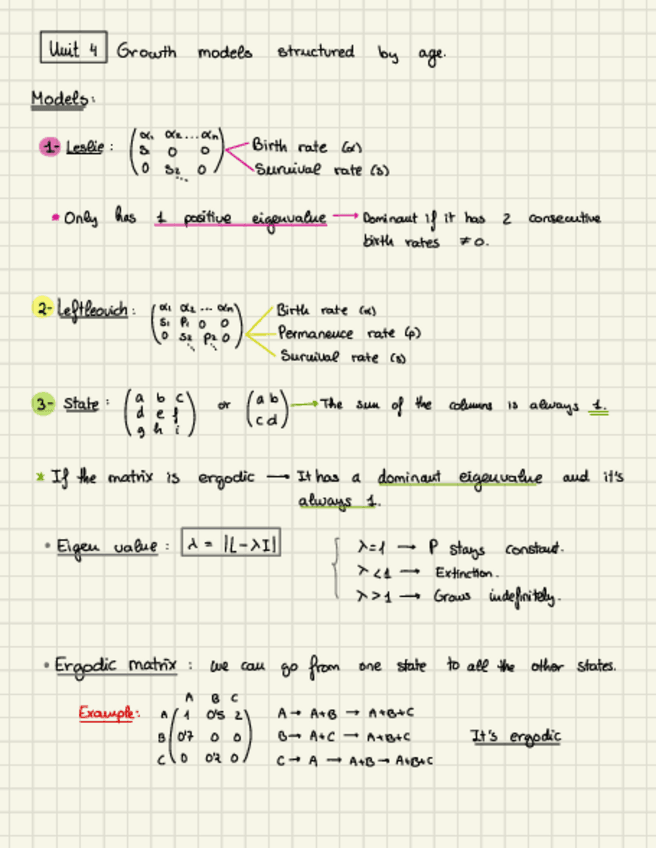 Unit 4 Growth models structured by age.
Models:
1- Leslie: (α₁ α₂ ... αₙ) Birth rate (α)
S₁ 0 0 Survival rate (s)
0 S₂ 0
...
* Only has 1 positive eigenvalue → Dominant if it has 2 consecutive
birth rates ≠0.
2- Leftleovich: (α₁ α₂ ... αₙ) Birth rate (α)
S₁ P₁ 0 0 Permanence rate (p)
0 S₂ P₂ 0 Survival rate (s)
3- State: (a b c or (a b → The sum of the columns is always 1.
d e f c d)
g h i)
* If the matrix is ergodic → It has a dominant eigenvalue and it's
always 1.
• Eigen value: λ = |L-λI| { λ=1 → P stays constant.
λ<1 → Extinction.
λ>1 → Grows indefinitely.
• Ergodic matrix: we can go from one state to all the other states.
A B C
Example: A (1 0'5 2) A → A+B → A+B+C
B 0'7 0 0 B → A+C → A+B+C It's ergodic
C (0 0'2 0) C → A → A+B → A+B+C